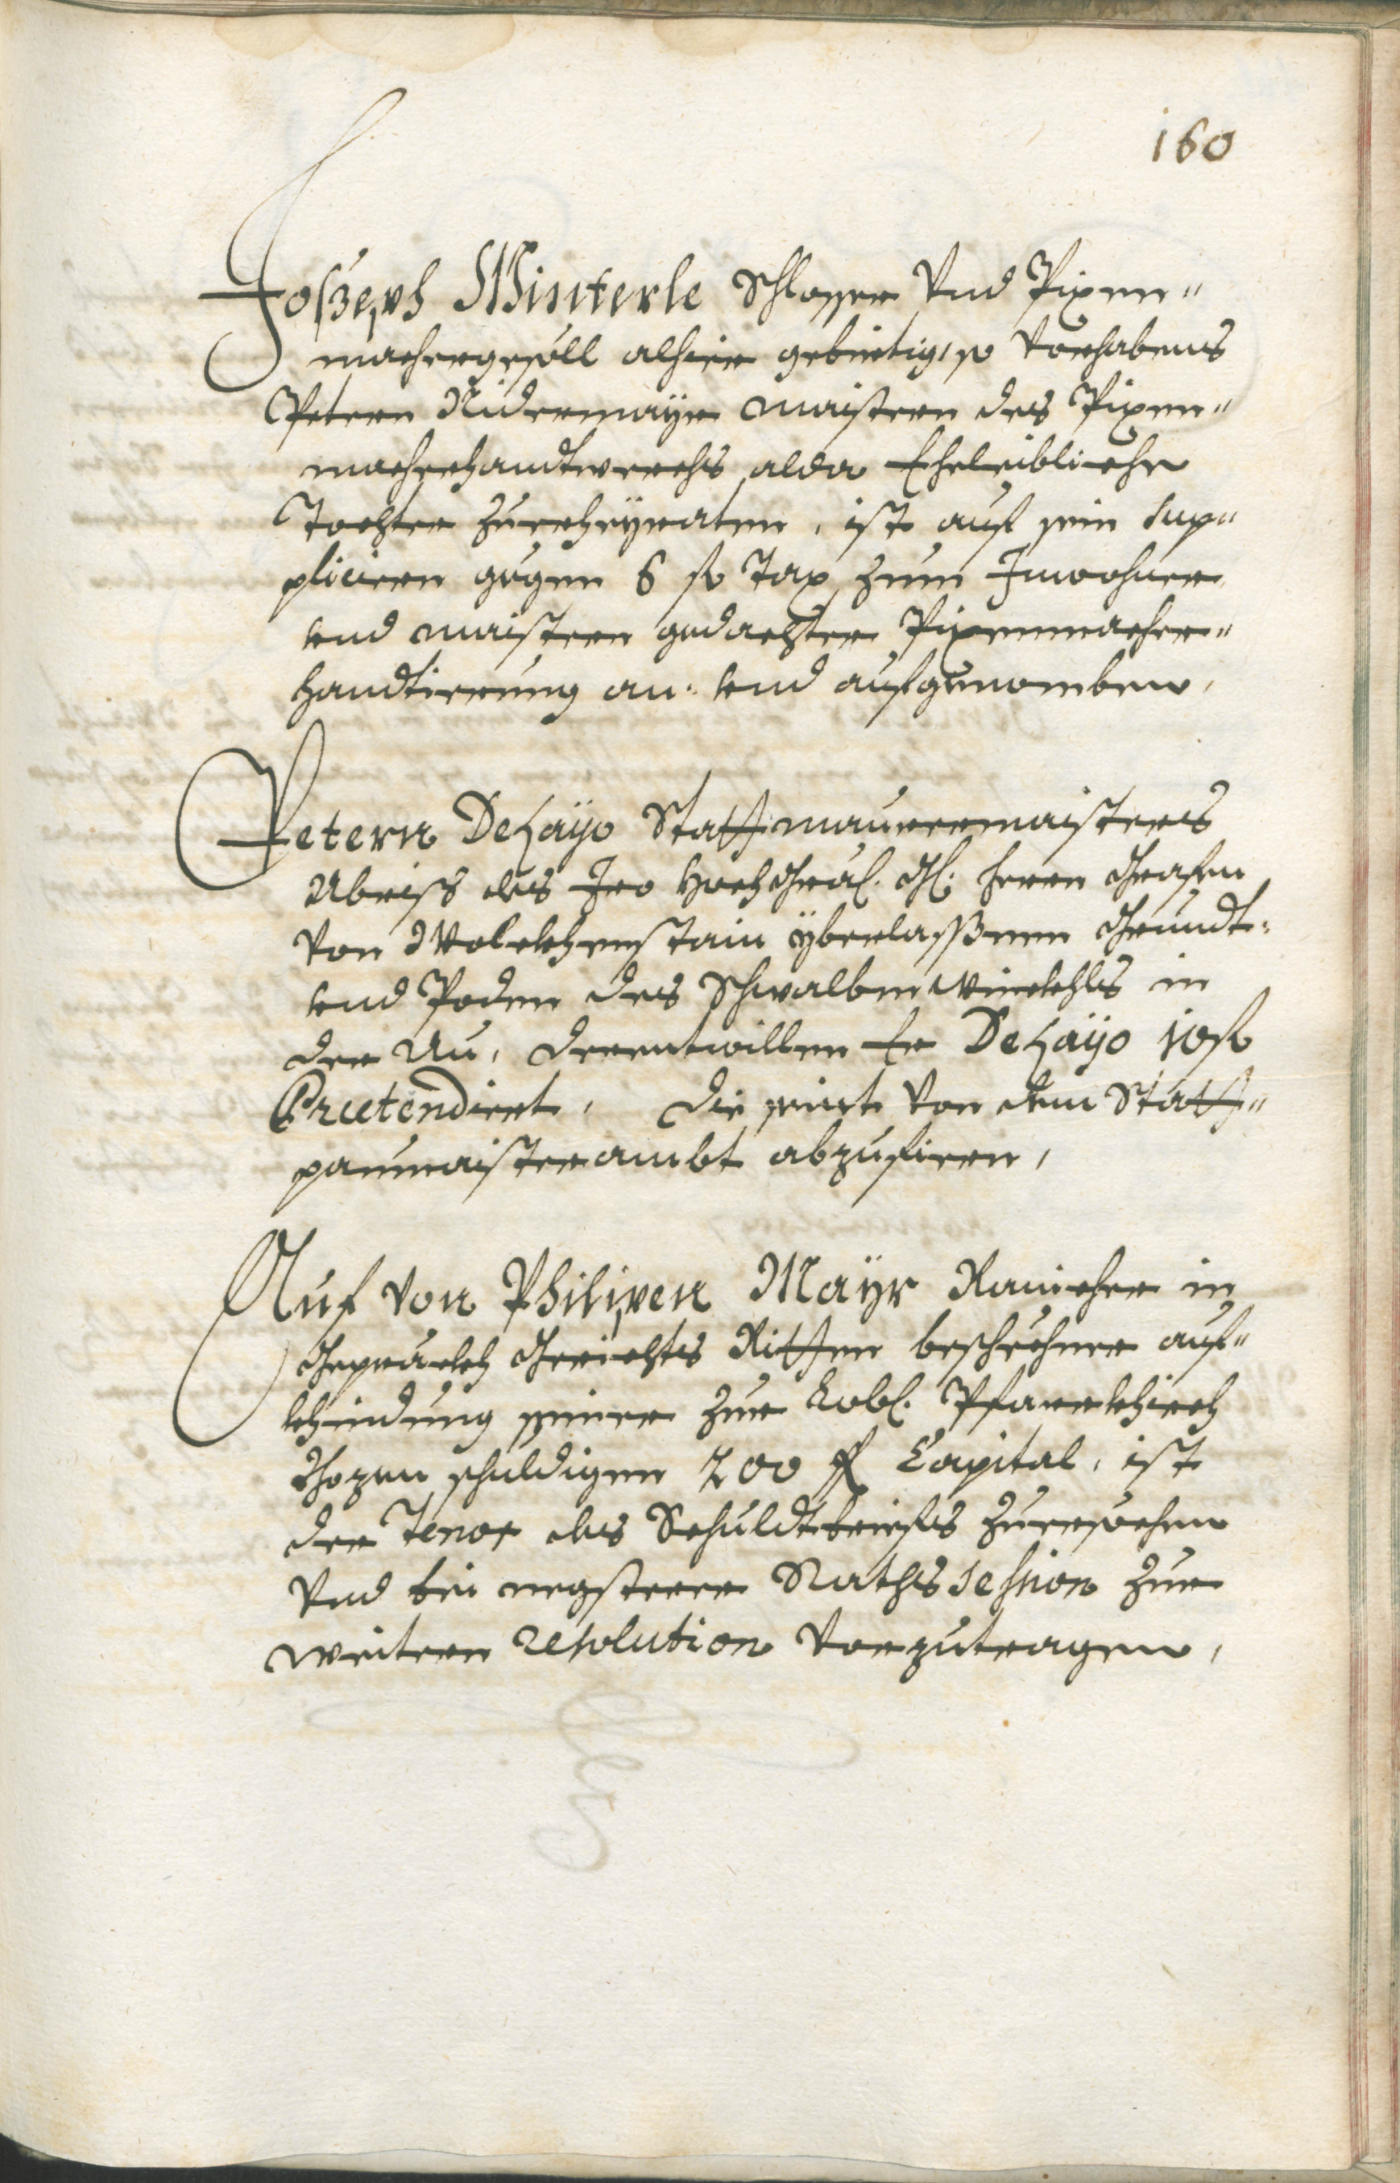 160
Joßeph Winterle Schlosser Vnd Pixen"
machergesöll alhier gebirtig, so Vorhabens
Petern Nidermayr maistern des Pixen"
macherhandtwerchs alda Eheleibliche
Tochter zuerheyraten, ist auf sein Sup"
pliciern gegen 6 fl Tax zum Inwohner
vnd maistern gedachter Pixenmacher"
handtierung an: vnd aufgenomben,
Petern Delayo Stattmaurermaisters
Abriss des Iro Hochgräfl. Gl. herrn Grafen
Von Wolckhenstain yberlassnen Grundt:
vnd Poden des Schwalben Winckhls in
der Au, derentwillen Er Delayo 10 fl
Praetendiert, die seint von dem Statt"
paumaisterambt abzufiern,
Auf von Philipen Mayr Rauicher in
Gepräckh Gerichts Ritten beschechner auf"
khindung seiner zur Lobl. Pfarrkhirch
Bozen schuldigen 200 fl Capital, ist
der Tenor des Schuldtbriefs zuersuchen
Vnd bei negsterer Raths session zur
weitern resolution vorzutragen,